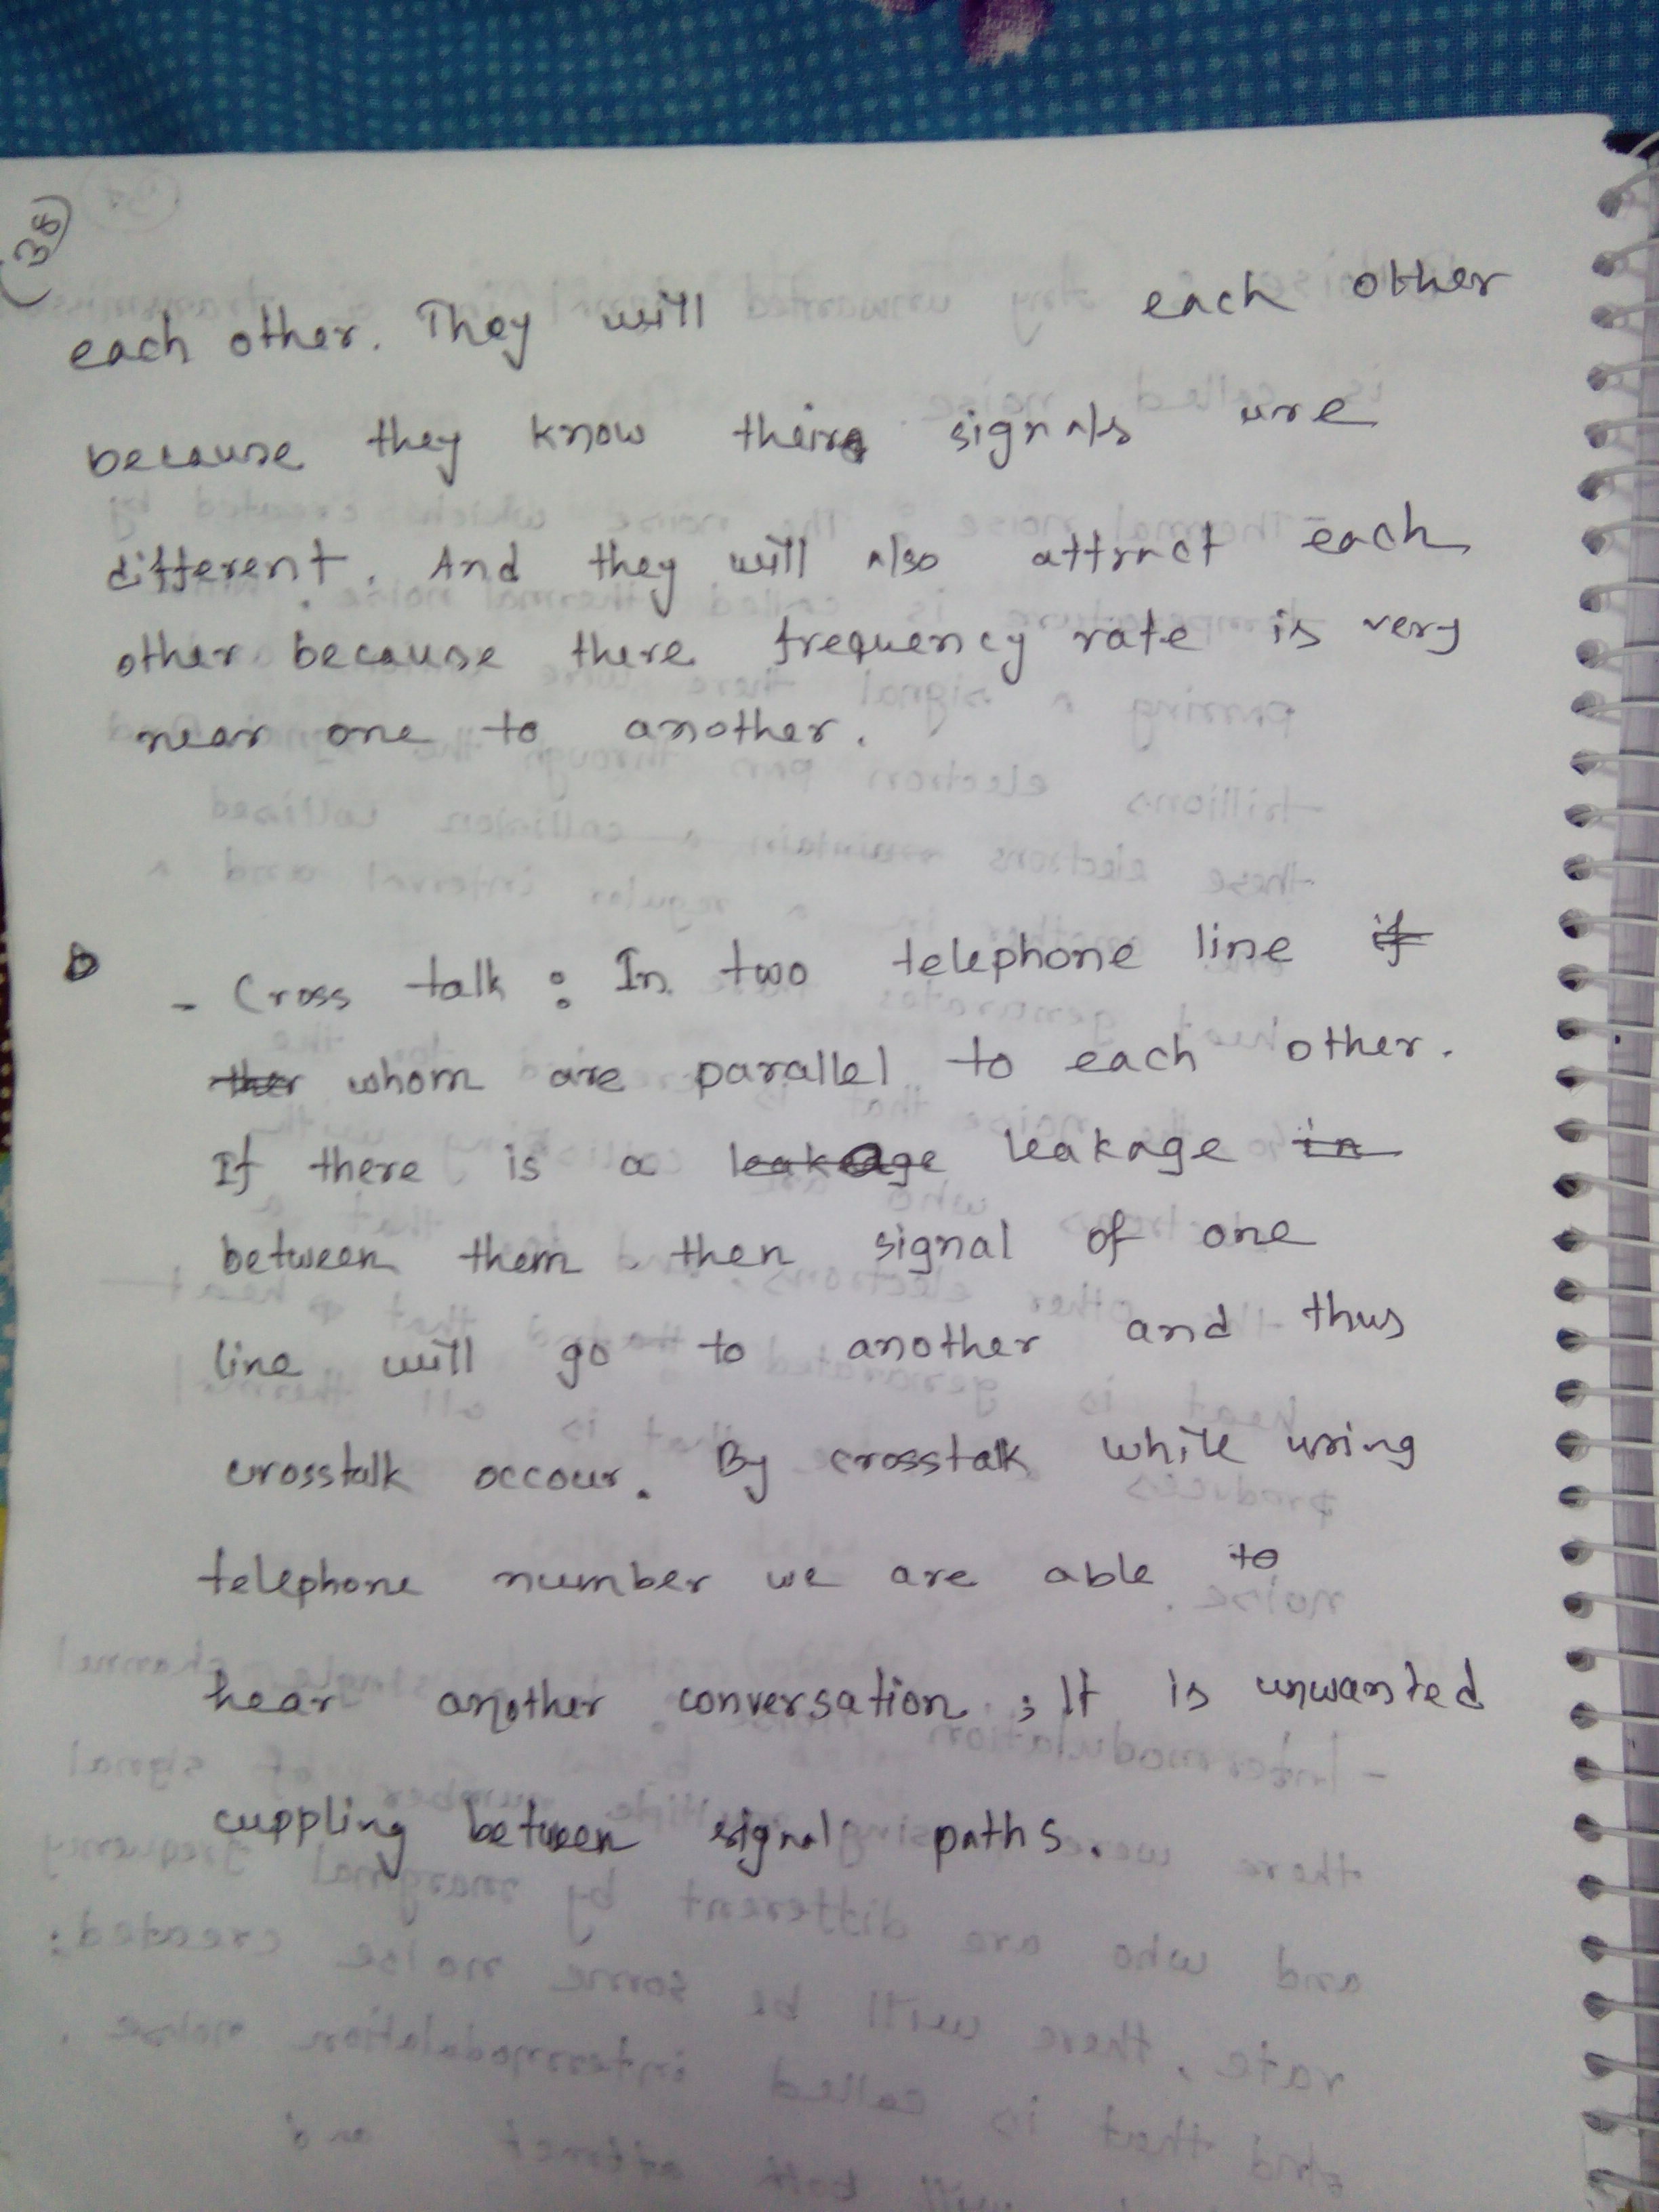 38
each other. They will each other
because they know their signals are
different. And they will also attract each
other because there frequency rate is very
near one to another.
- Cross talk : In two telephone line if
ther whom are parallel to each other.
If there is a leakage leakage in
between them then signal of one
line will go to another and thus
crosstalk occour. By crosstalk while using
telephone number we are able to
hear another conversation ; It is unwanted
cuppling between signal paths.